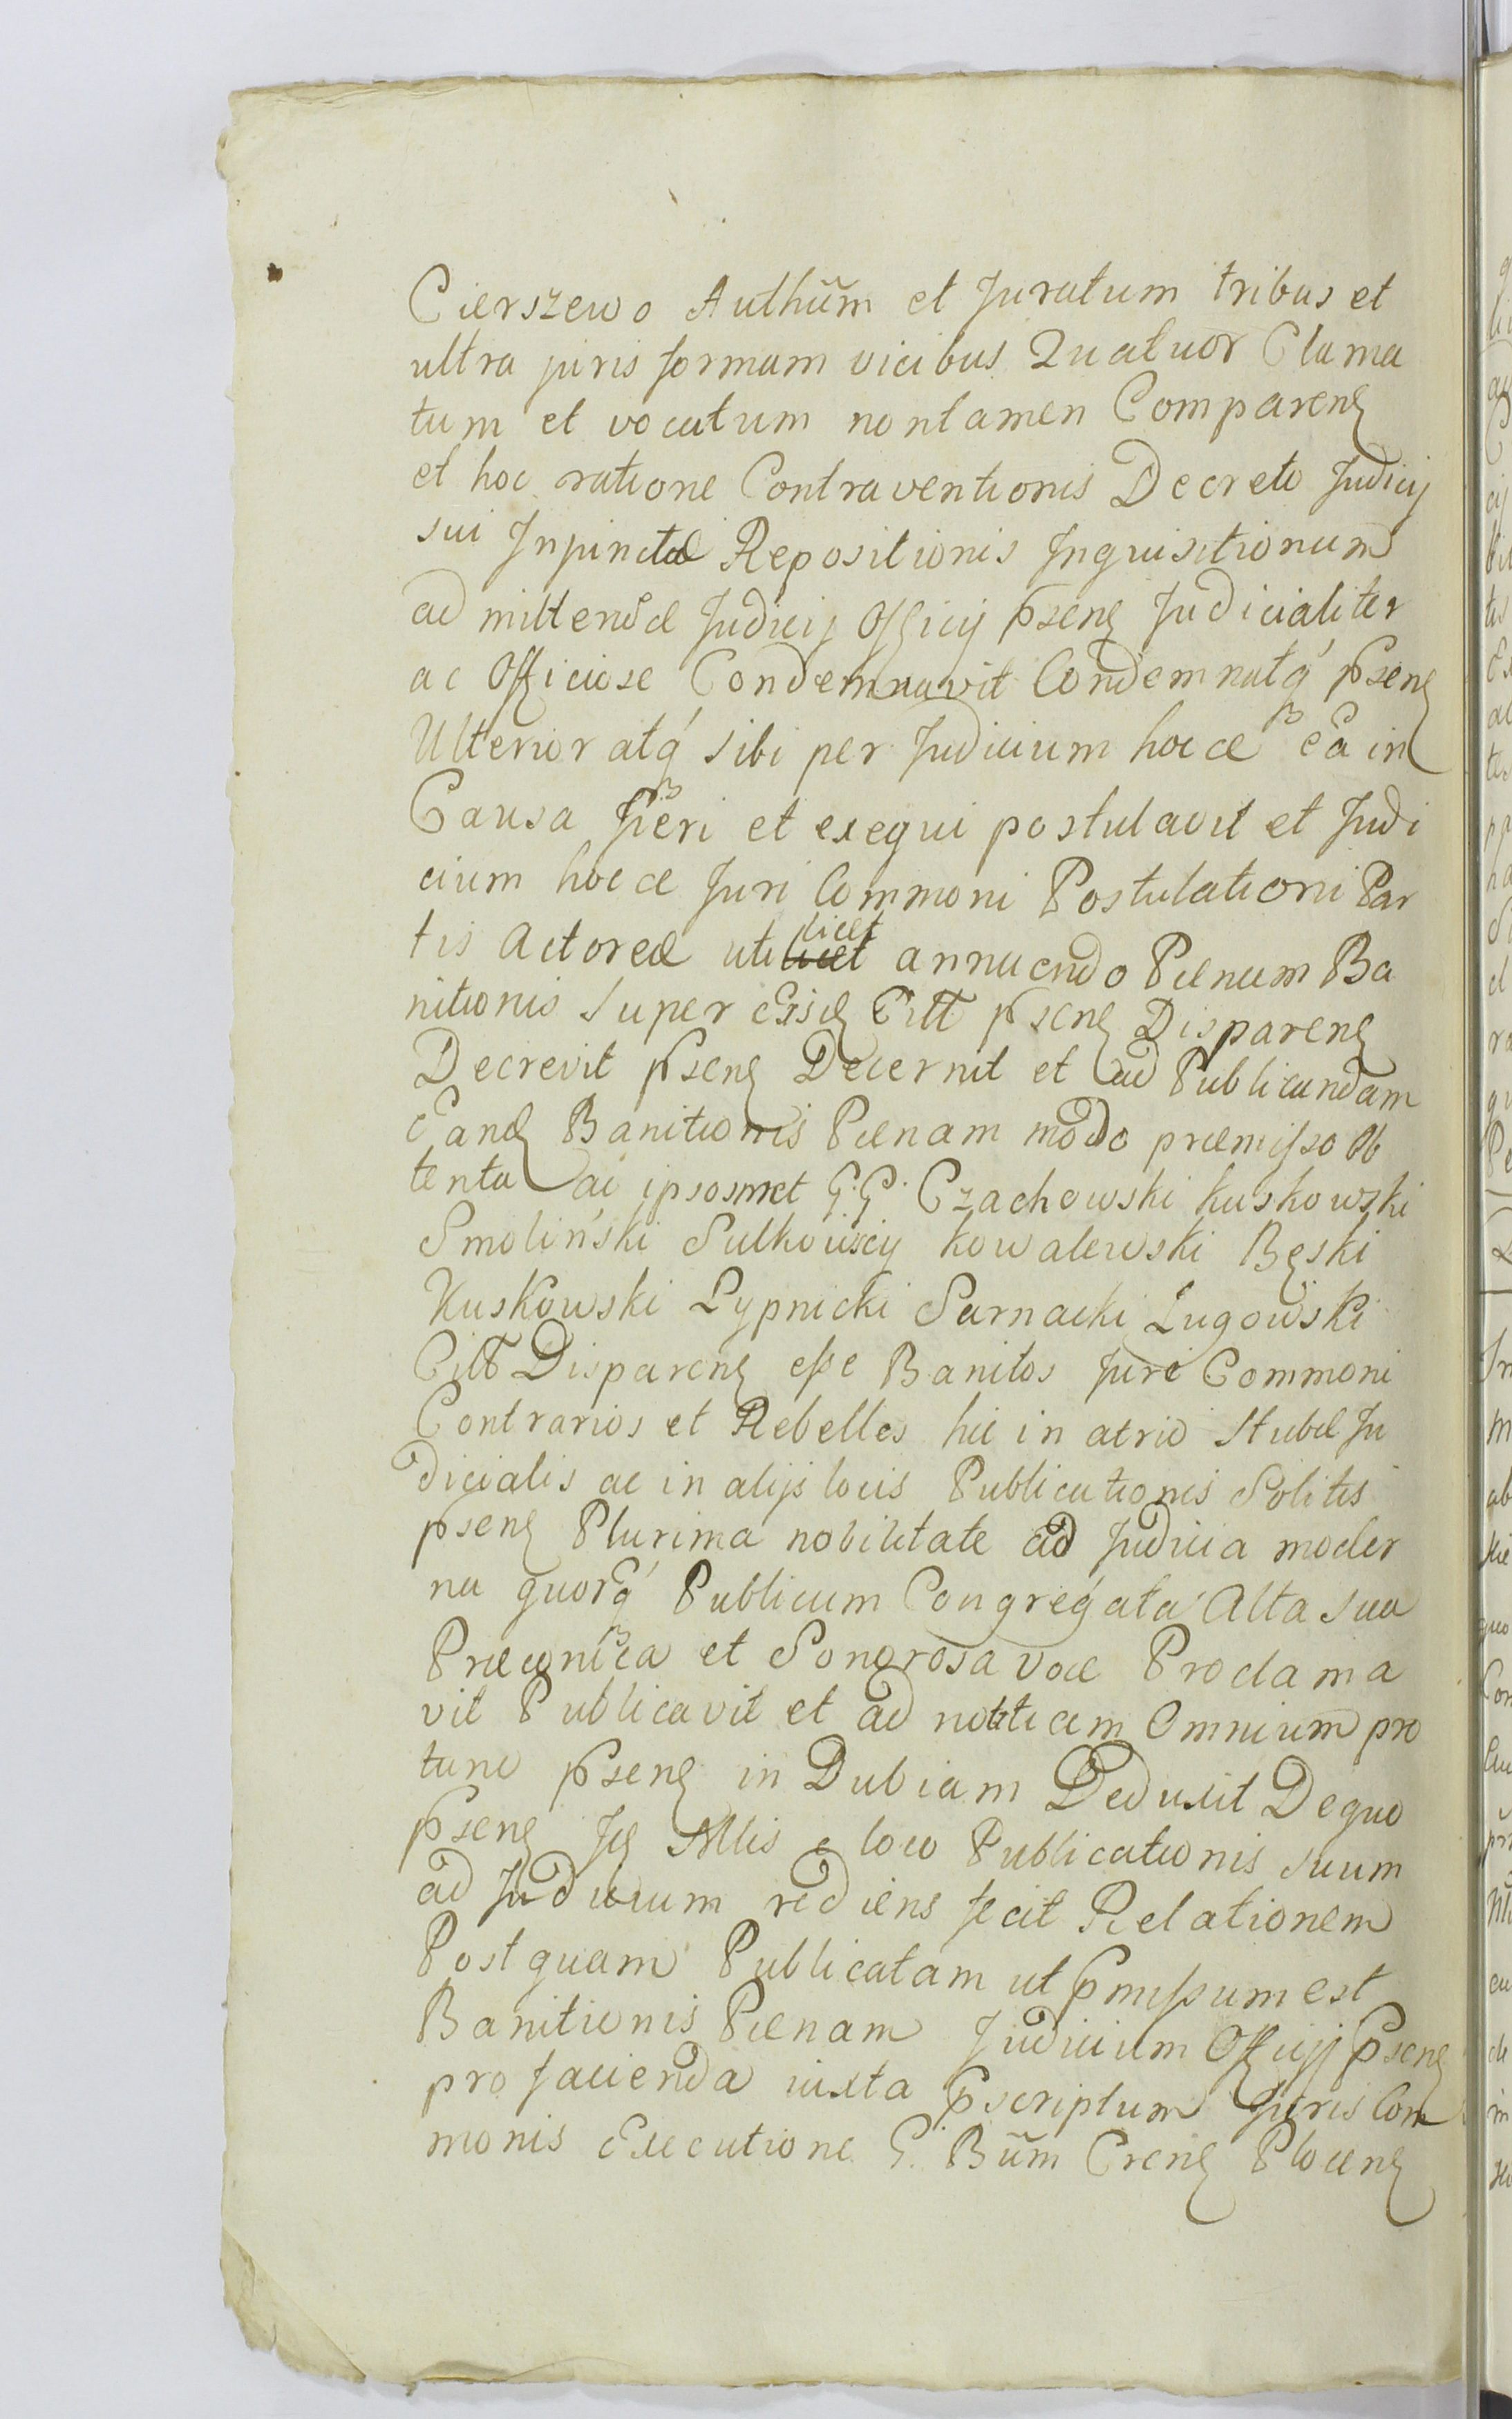 Cierszewo Authũm et Juratum tribus et
ultra juris formam vicibus Quatuor Clama
tum et vocatum nontamen Comparenꝫ
et hoc ratione Contraventionis Decreto Judicij
sui Injunctæ Repositionis Inquisitionum
admittendæ Judicij Officij pseñꝫ Judicialiter
ac Officiose Condemnavit Condemnatq́ psenꝫ
Ulterioratq́ sibi per Judicium hocce eã in
Causa fieri et exequi postulavit et Judi
cium hocce Juri Commoni Postulationi Par
tis Actoreæ uti licet annuendo Pænam Ba
nitionis super Citt psenꝫ Disparenꝫ
Decrevit psenꝫ Decernit et ad Publicandam
Eandꝫ Banitionis Pænam modo præmisso Ob
tentu ac ipsosmet G.G. Czachowski Kuskowski
Smoliński Sulkowscy Kowalewski Bęski
Kuskowski Lypnicki Sarnacki Lugowski
Citt Disparenꝫ esse Banitos Juri Commoni
Contrarios et Rebelles hic in atrio Stubæ Ju
dicialis ac in alijs locis Publicationis Solitis
psenꝫ Plurima nobilitate ad Judicia moder
na quorq́ Publicum Congregata Alta sua
Præconica et Sonorosa voce Proclama
vit Publicavit et ad notitiam Omnium pro
tunc psenꝫ in Dubiam Deduxit Dequo
psenꝫ Mlis e loco Publicationis suum
ad Judicium rediens fecit Relationem
Postquam Publicatam ut pmissum est
Banitionis Pænam Judicium Officij psenꝫ
pro facienda iuxta pscriptum Juris Com
monis Executione G. Bũm Crenꝫ Plocenꝫ